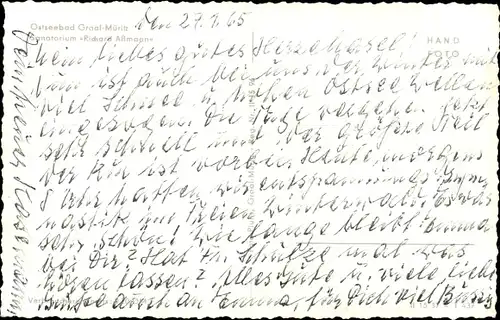 den 27.1.65
Ostseebad Graal-Müritz
Sanatorium »Richard Aßmann«
HAND
FOTO
Mein liebes gutes Herzehasel!
Nun ist auch bei uns der Winter mit
viel Schnee u. hohen Ostseewellen
eingezogen. Die Tage vergehen jetzt
sehr schnell und der größte Teil
der Kur ist vorbei. Heute morgens
7 Uhr hatten wir Entspannungs-Gym-
nastik im freien Winterwald. Es war
sehr schön! Wie lange bleibt Emma
bei Dir? Hat Fr. Schulze mal was
hören lassen? Alles Gute u. viele liebe
Grüße auch an Emma, für Dich viel Bussi
Dein